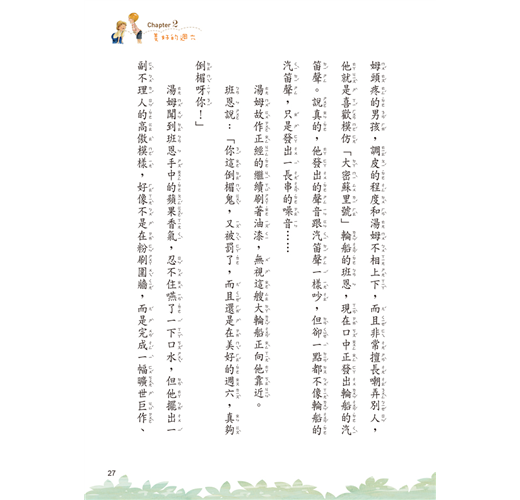 Chapter 2
美好的週六
姆頭疼的男孩，調皮的程度和湯姆不相上下，而且非常擅長嘲弄別人，
他就是喜歡模仿「大密蘇里號」輪船的班恩，現在口中正發出輪船的汽
笛聲。說真的，他發出的聲音跟汽笛聲一樣吵，但卻一點都不像輪船的
汽笛聲，只是發出一長串的噪音……
湯姆故作正經的繼續刷著油漆，無視這艘大輪船正向他靠近。
班恩說：「你這倒楣鬼，又被罰了，而且還是在美好的週六，真夠
倒楣呀你！」
湯姆聞到班恩手中的蘋果香氣，忍不住嚥了一下口水，但他擺出一
副不理人的高傲模樣，好像不是在粉刷圍牆，而是完成一幅曠世巨作、
27